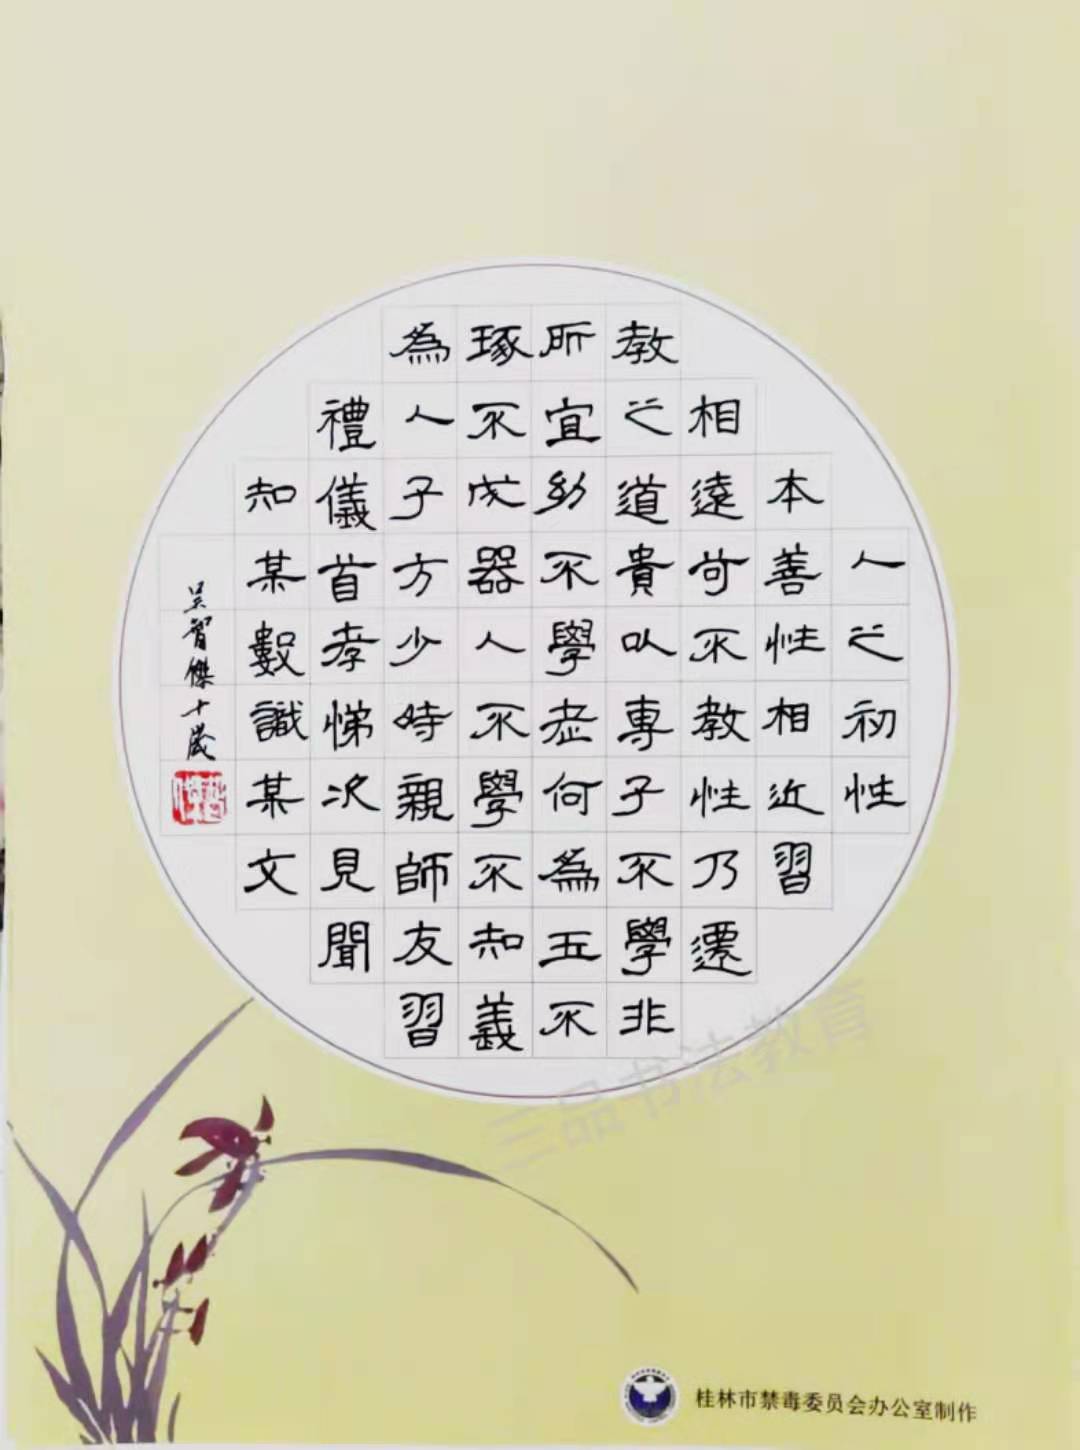 人之初性
本善性相近習
相遠苟不教性乃遷
教之道貴以專子不學非
所宜幼不學老何為五不
琢不成器人不學不知義
為人子方少時親師友習
禮儀首孝悌次見聞
知某數識某文
吳智傑十歲
三品书法教育
桂林市禁毒委员会办公室制作